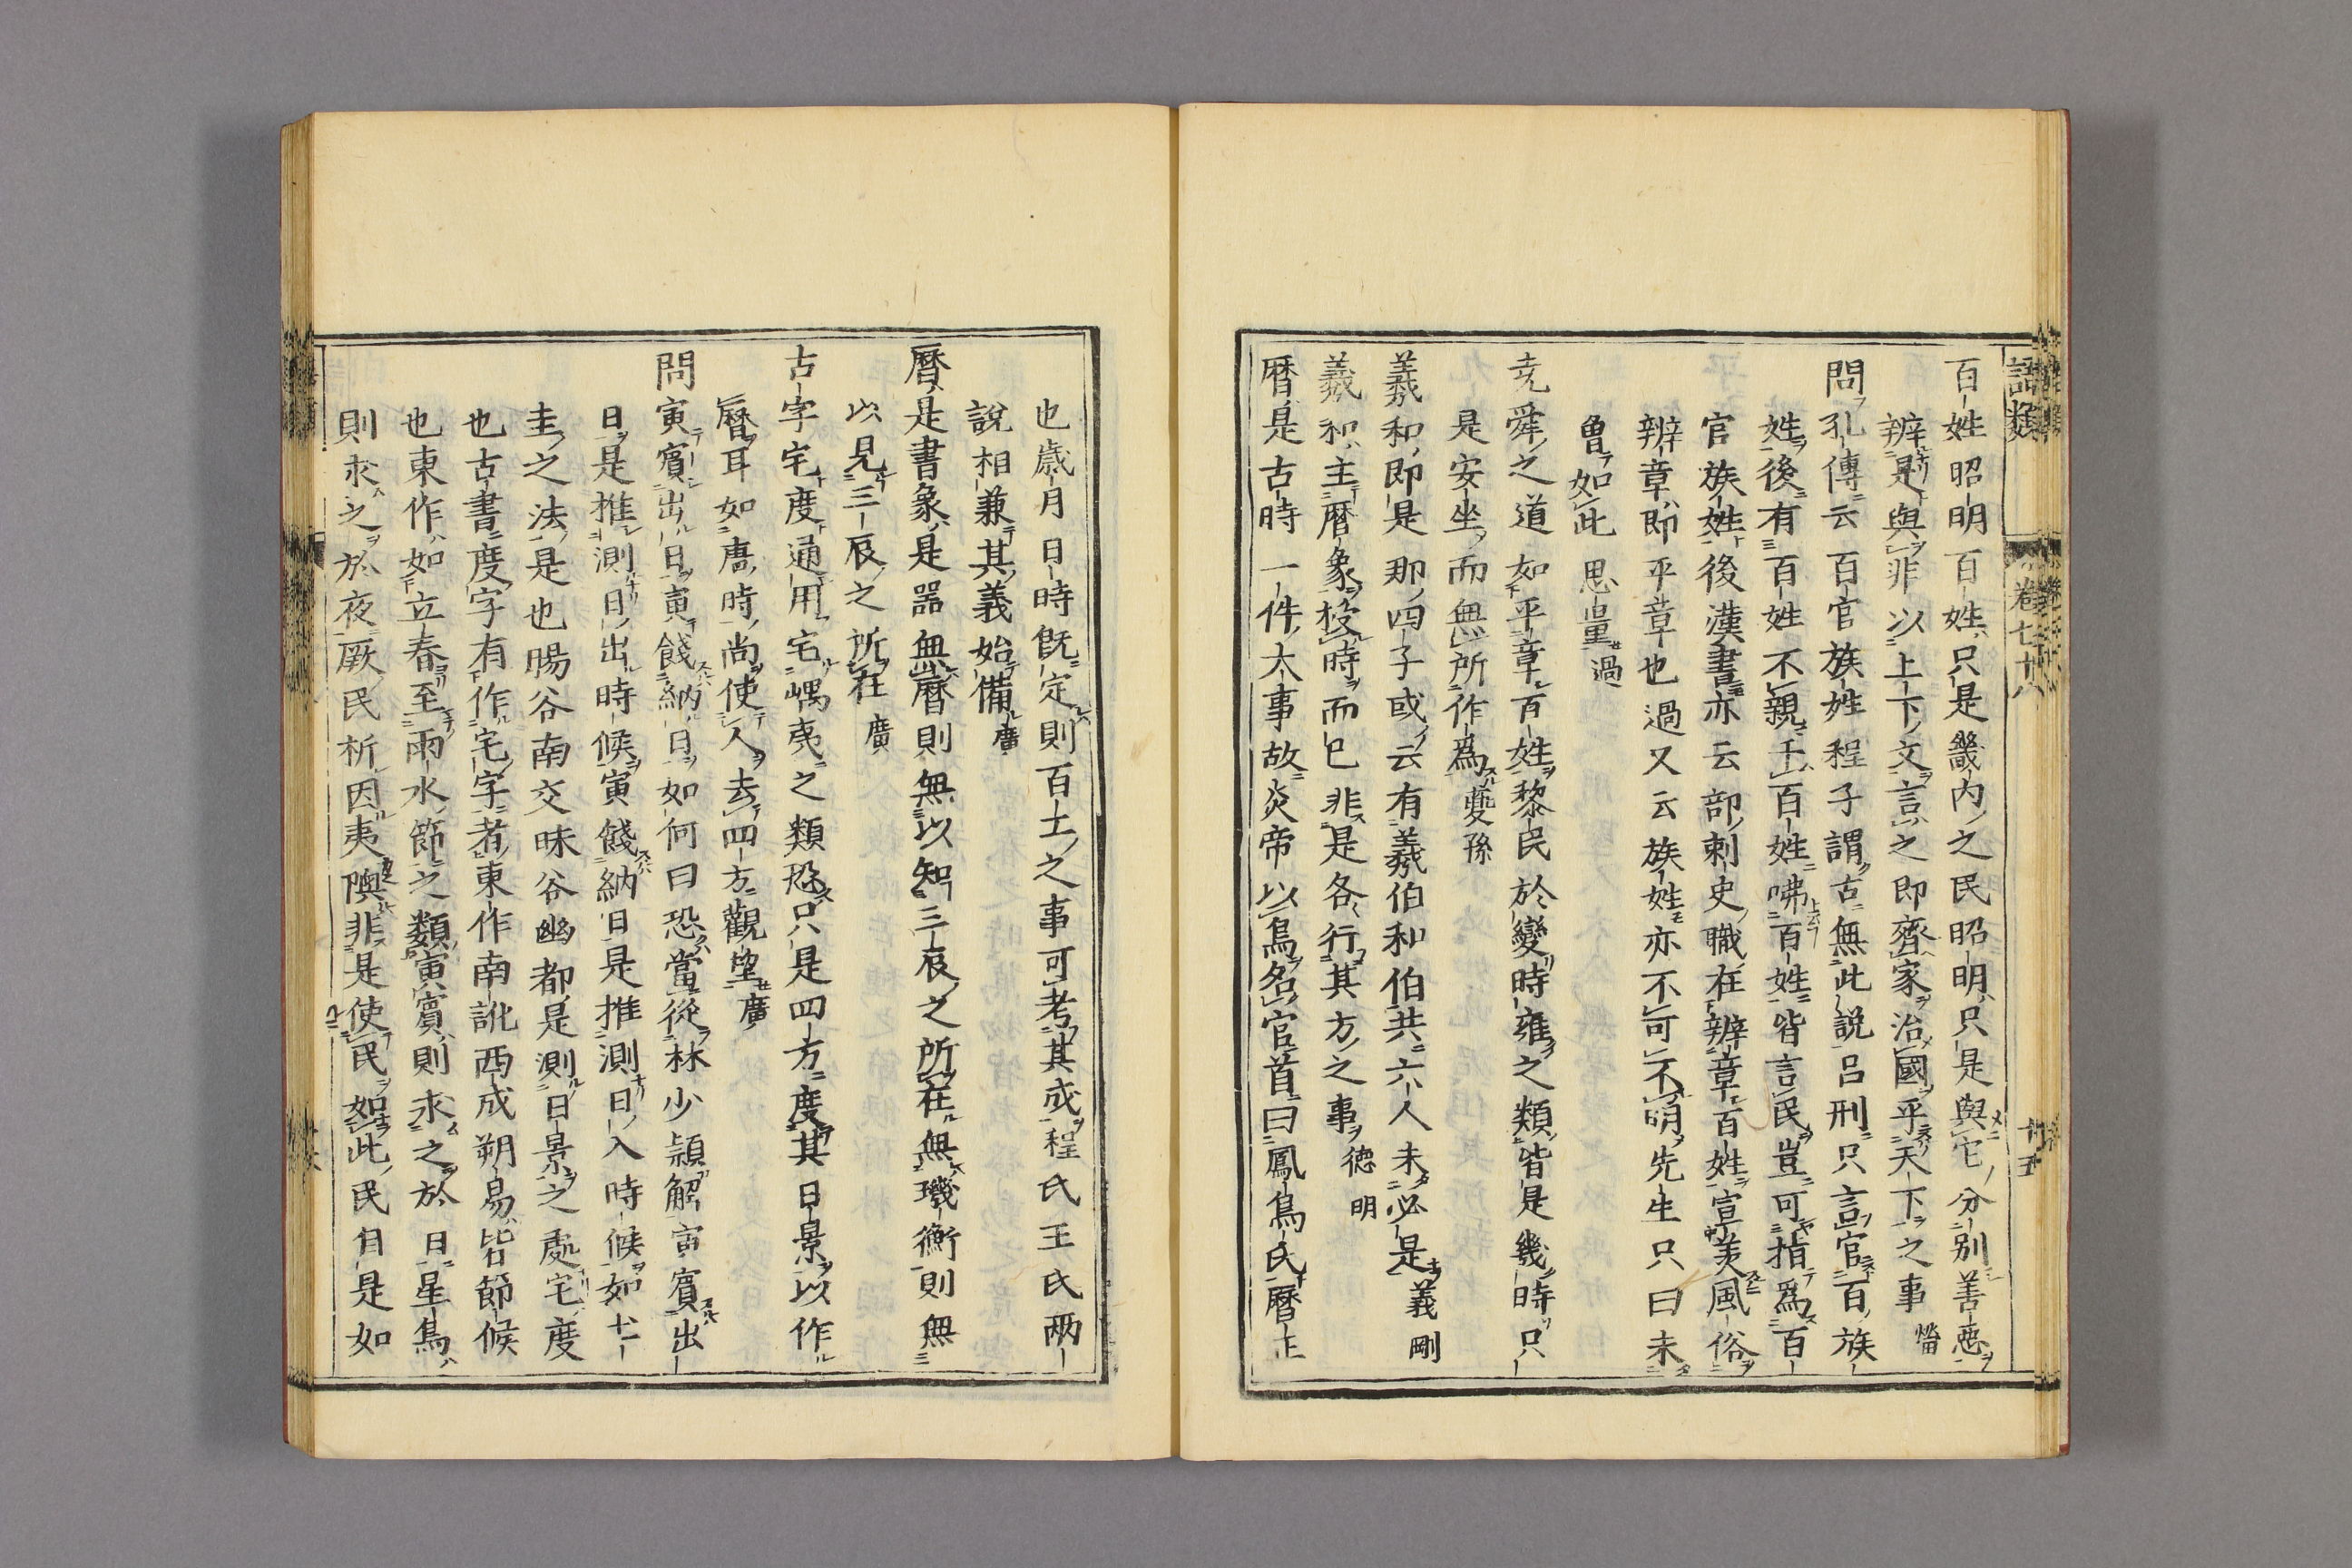 語類
卷七十八
十五
百姓昭明百姓只是畿内之民昭明只是與它分别善惡
辨是與非以上下文言之即齊家治國平天下之事 㽦
問孔傳云百官族姓程子謂古無此説呂刑只言官百族
姓後有百姓不親于百姓咈百姓皆言民豈可指爲百
官族姓後漢書亦云部刺史職在辨章百姓宣美風俗
辨章即平章也過又云族姓亦不可不明先生只曰未
曾如此思量過
尭舜之道如平章百姓黎民於變時雍之類皆是幾時只
是安坐而無所作爲 夔孫
羲和即是那四子或云有羲伯和伯共六人未必是 義剛
羲和主曆象授時而已非是各行其方之事 德明
曆是古時一件大事故炎帝以鳥名官首曰鳳鳥氏曆正
也歳月日時既定則百工之事可考其成程氏王氏两
說相兼其義始備 廣
曆是書象是噐無曆則無以知三辰之所在無璣衡則無
以見三辰之所在 廣
古字宅度通用宅嵎夷之類恐只是四方度其日景以作
曆耳如唐時尚使人去四方觀望 廣
問寅賓出日寅餞納日如何曰恐當從林少頴解寅賓出
日是推測日出時候寅餞納日是推測日入時候如土
圭之法是也暘谷南交昧谷幽都是測日景之處宅度
也古書度字有作宅字者東作南訛西成朔易皆節候
也東作如立春至雨水節之類寅賓則求之於日星鳥
則求之於夜厥民析因夷隩非是使民如此民自是如